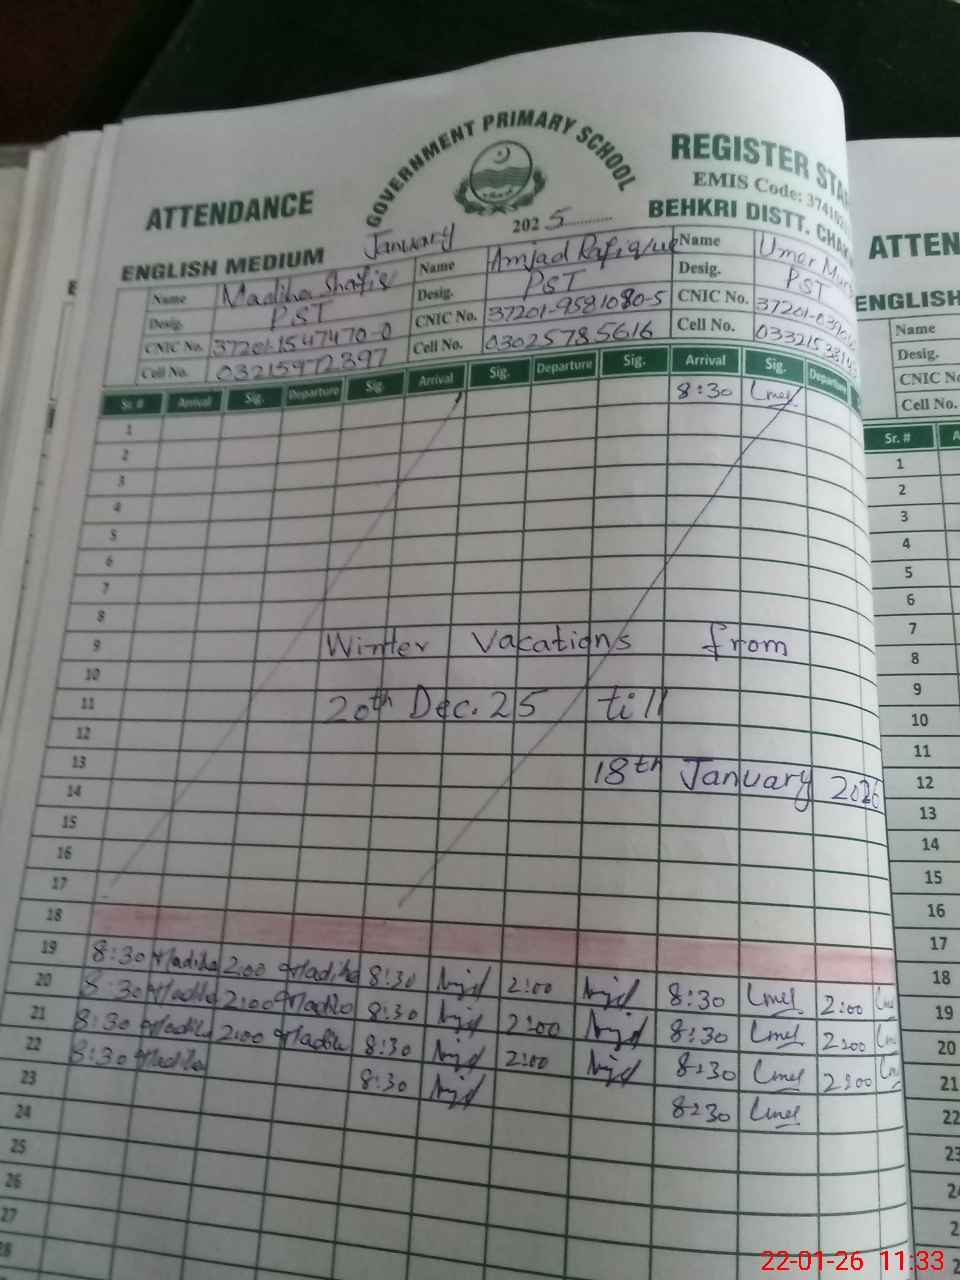 GOVERNMENT PRIMARY SCHOOL
ATTENDANCE
REGISTER
EMIS Code:
ENGLISH MEDIUM
January
2025
BEHKRI DISTT.
Name Madiha Shafiq
Desig. PST
CNIC No. 37201-1547470-0
Cell No. 03215972897
Name Amjad Rafique
Desig. PST
CNIC No. 37201-9581080-5
Cell No. 03025785616
Name Umer
Desig. PST
CNIC No.
Cell No.
Sr. # Arrival Sig. Departure Sig. Arrival Sig. Departure Sig. Arrival Sig. Departure
1 8:30 Umer
2
3
4
5
6
7
8
9 Winter Vacations from
10
11 20th Dec. 25 till
12
13 18th January 2026
14
15
16
17
18
19 8:30 Madiha 2:00 Madiha 8:30 Amjd 2:00 Amjd 8:30 Umer 2:00
20 8:30 Madiha 2:00 Madiha 8:30 Amjd 2:00 Amjd 8:30 Umer 2:00
21 8:30 Madiha 2:00 Madiha 8:30 Amjd 2:00 Amjd 8:30 Umer 2:00
22 8:30 Madiha 8:30 Amjd 8:30 Umer
23
24
25
26
27
28
ATTEN
ENGLISH
Name
Desig.
CNIC No.
Cell No.
Sr. #
1
2
3
4
5
6
7
8
9
10
11
12
13
14
15
16
17
18
19
20
21
22
23
22-01-26 11:33